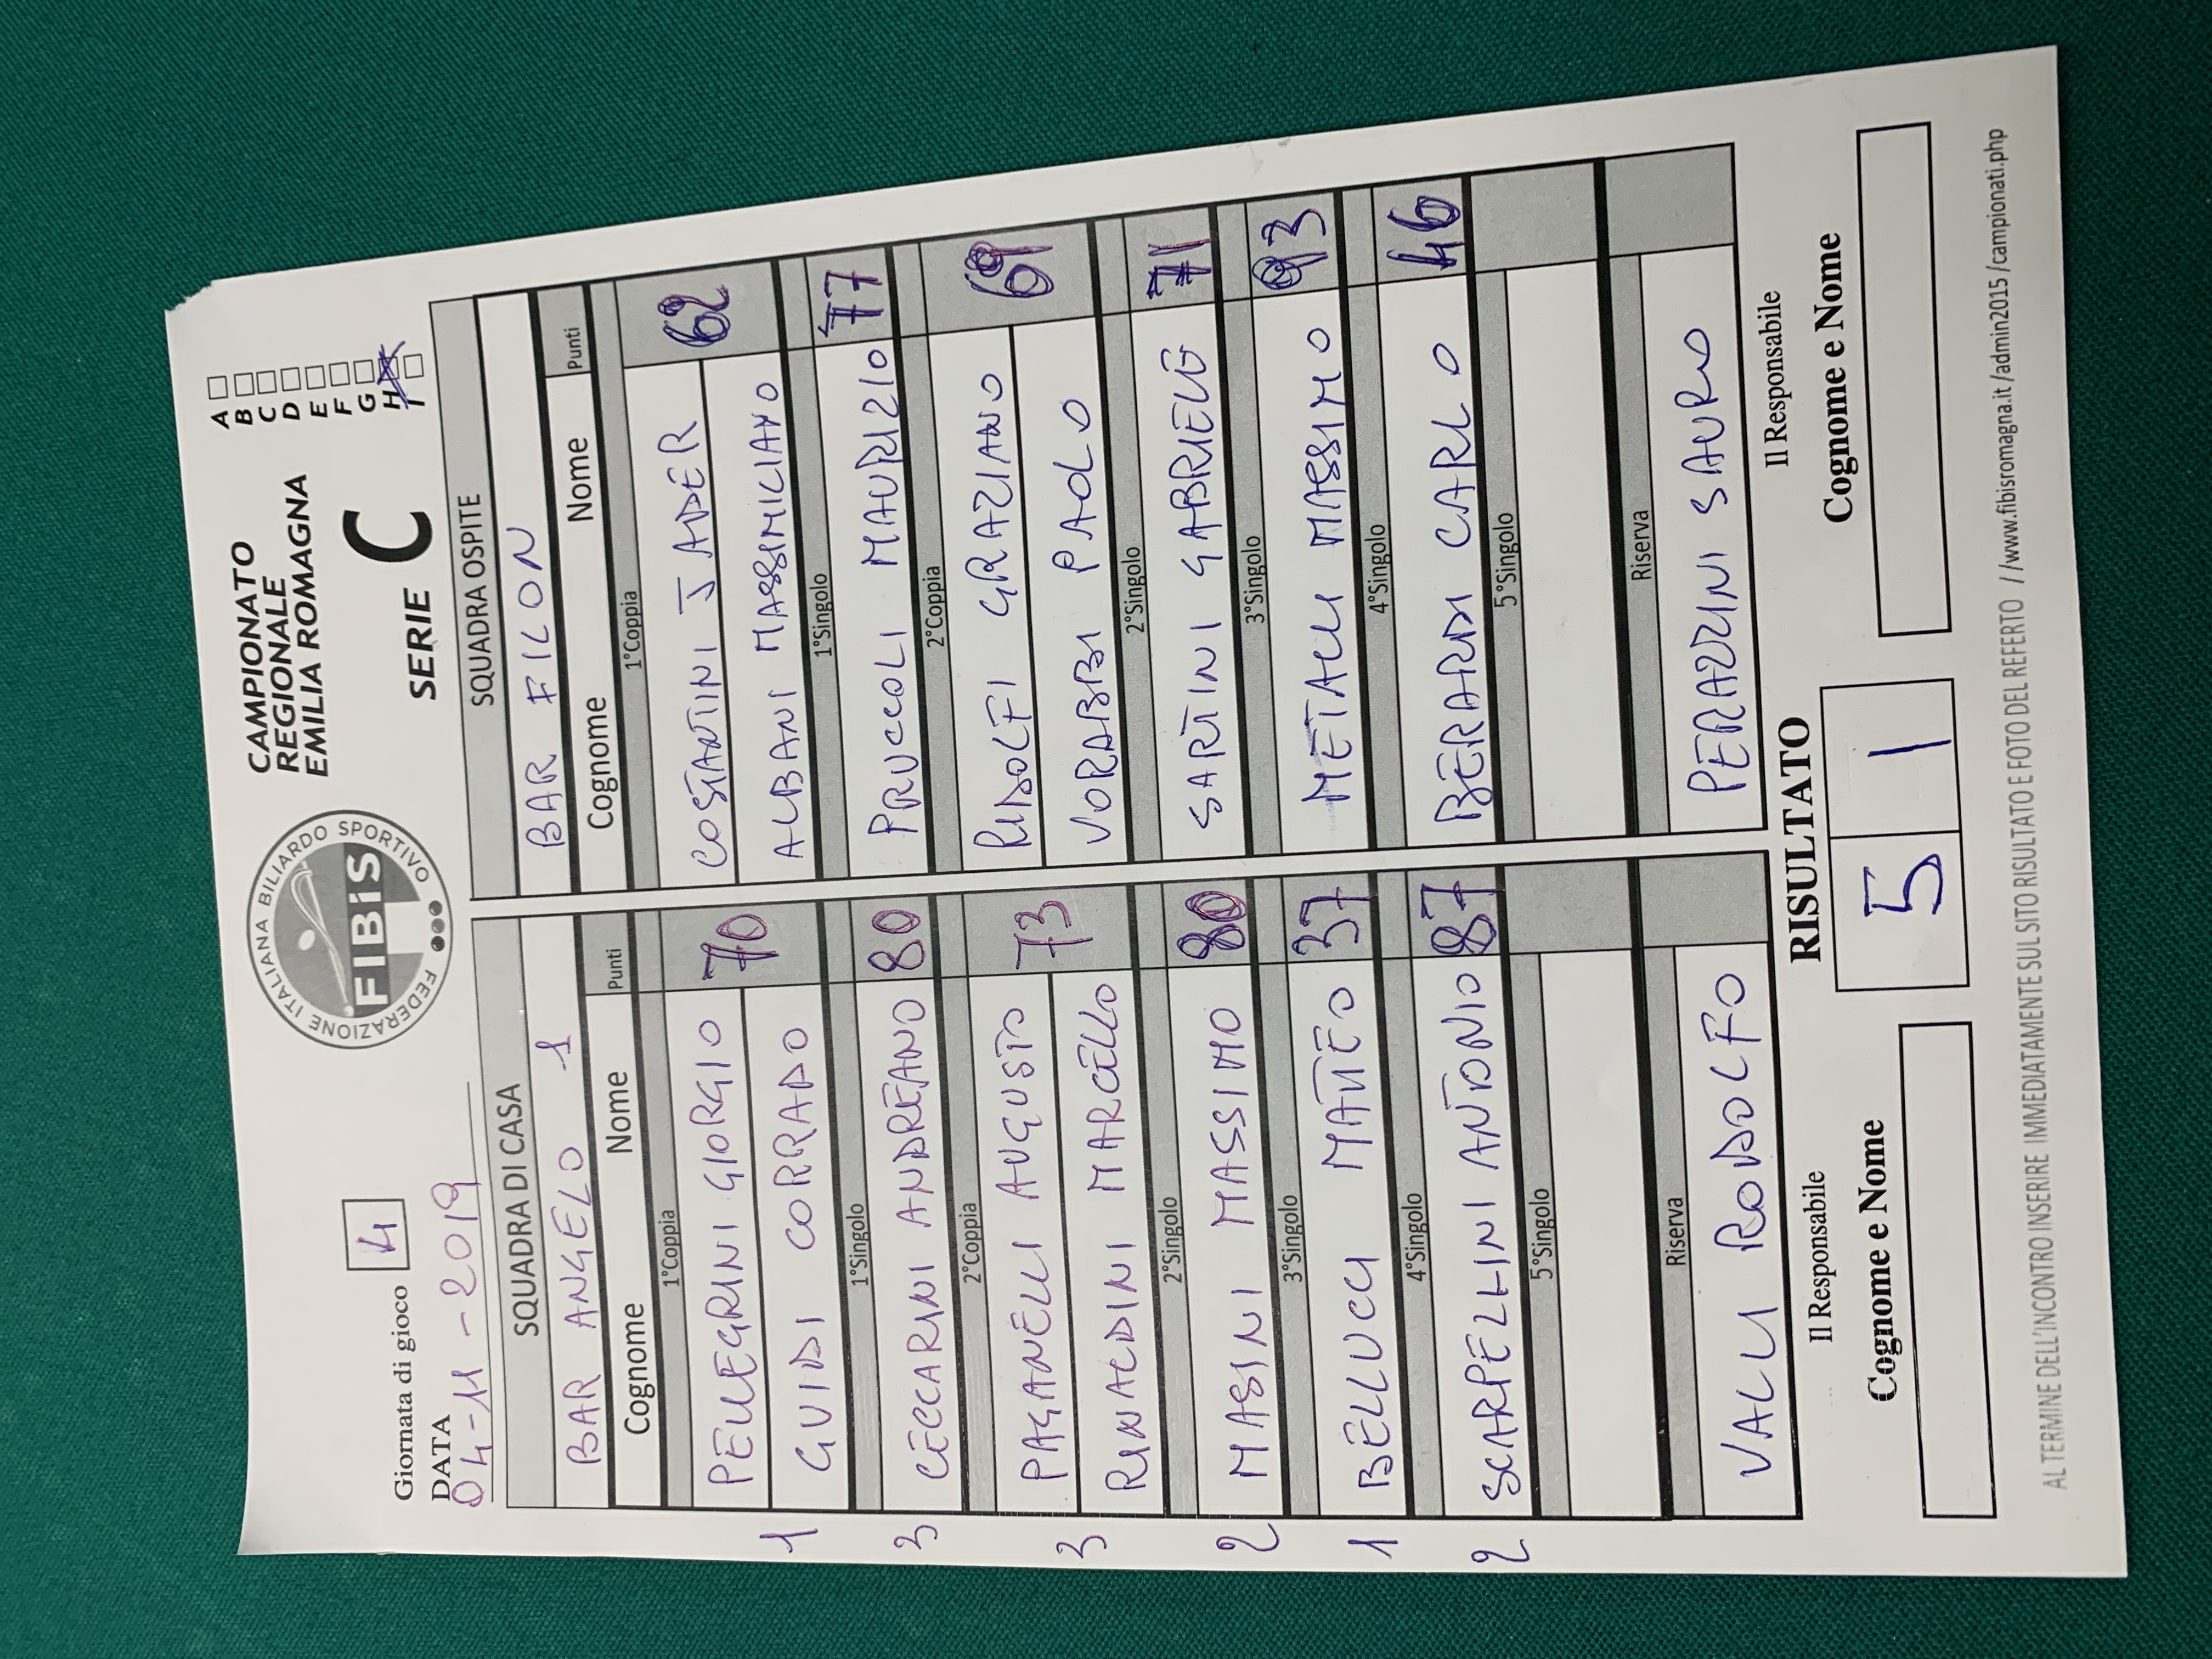 Giornata di gioco 4
DATA
04-11-2019
FEDERAZIONE ITALIANA BILIARDO SPORTIVO
FIBiS
CAMPIONATO
REGIONALE
EMILIA ROMAGNA
SERIE C
A
B
C
D
E
F
G
H
I
SQUADRA DI CASA
BAR ANGELO 1
Cognome Nome Punti
1°Coppia
PELLEGRINI GIORGIO 70
GUIDI CORRADO
1
1°Singolo
CECCARINI ANDREANO 80
3
2°Coppia
PAGANELLI AUGUSTO 73
RINALDINI MARCELLO
3
2°Singolo
MASINI MASSIMO 80
2
3°Singolo
BELLUCCI MATTEO 37
1
4°Singolo
SCARPELLINI ANTONIO 87
2
5°Singolo
Riserva
VALLI RODOLFO
SQUADRA OSPITE
BAR FILON
Cognome Nome Punti
1°Coppia
COSTANTINI JADER 62
ALBANI MASSIMILIANO
1°Singolo
PRUCCOLI MAURIZIO 77
2°Coppia
RIDOLFI GRAZIANO 69
VORABBI PAOLO
2°Singolo
SARTINI GABRIELE 71
3°Singolo
METALLI MASSIMO 93
4°Singolo
BERARDI CARLO 46
5°Singolo
Riserva
PERAZZINI SAURO
Il Responsabile
Cognome e Nome
RISULTATO
5 1
Il Responsabile
Cognome e Nome
AL TERMINE DELL'INCONTRO INSERIRE IMMEDIATAMENTE SUL SITO RISULTATO E FOTO DEL REFERTO //www.fibisromagna.it /admin2015 /campionati.php